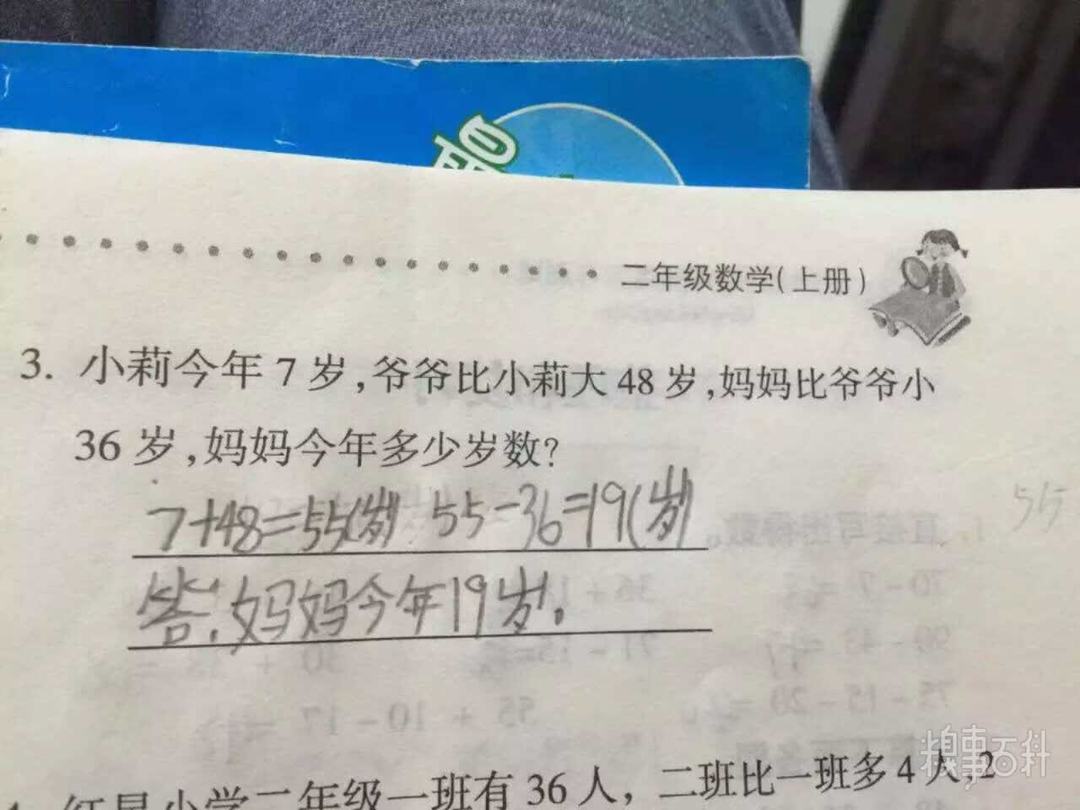 二年级数学(上册)
3. 小莉今年7岁,爷爷比小莉大48岁,妈妈比爷爷小
36岁,妈妈今年多少岁数?
7+48=55(岁) 55-36=19(岁)
答:妈妈今年19岁。
55
红星小学二年级一班有36人,二班比一班多4人,2
糗事百科